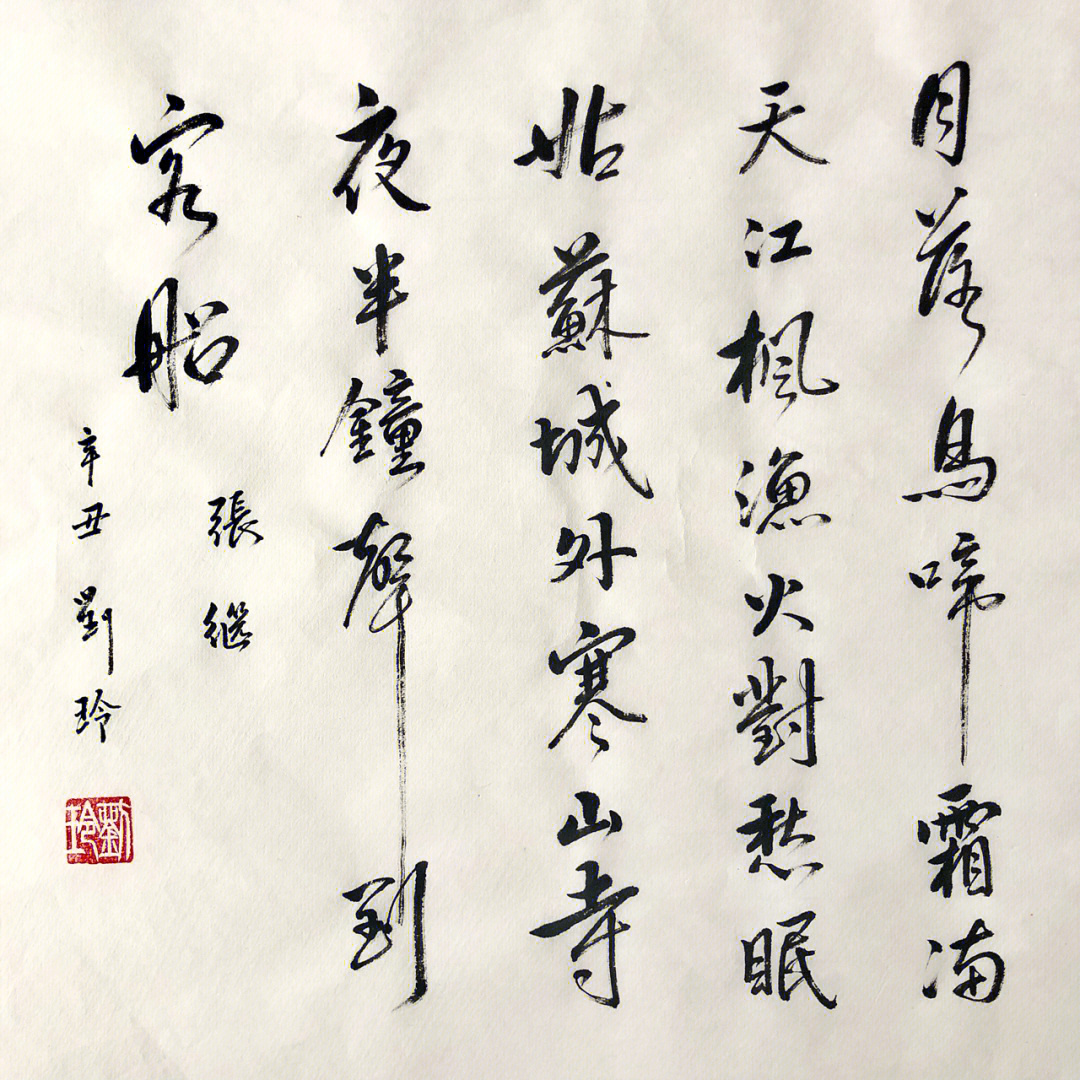 月落烏啼霜滿
天江楓漁火對愁眠
姑蘇城外寒山寺
夜半鐘聲到
客船
張繼
辛丑劉玲
劉玲